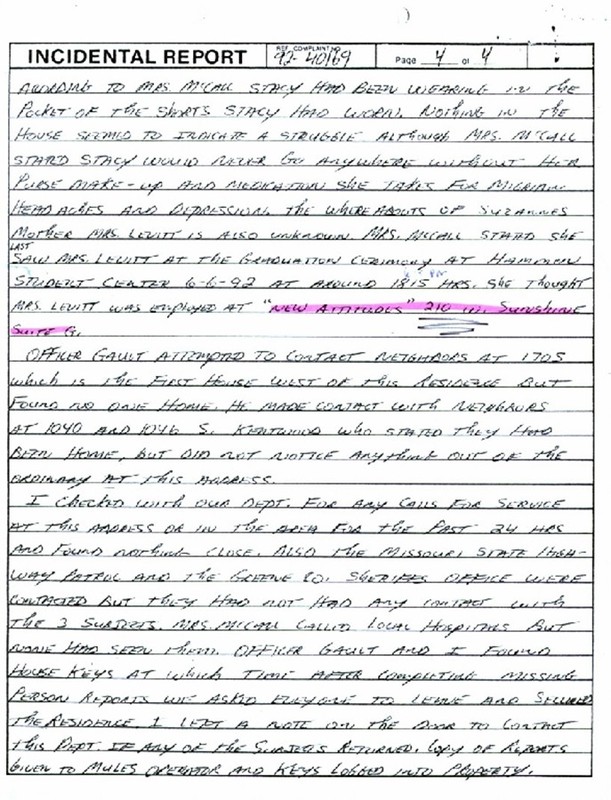 INCIDENTAL REPORT REF. COMPLAINT NO. 92-40169 Page 4 of 4
ACORDING TO MRS. McCALL STACY HAD BEEN WEARING IN THE
POCKET OF THE SHORTS STACY HAD WORN. NOTHING IN THE
HOUSE SEEMED TO INDICATE A STRUGGLE ALTHOUGH MRS. McCALL
STATD STACY WOULD NEVER GO ANYWHERE WITHOUT HER
PURSE MAKE-UP AND MEDICATION SHE TAKES FOR MIGRIAN
HEADACHES AND DEPRESSION. THE WHEREABOUTS OF SUZANNES
MOTHER MRS. LEVITT IS ALSO UNKNOWN. MRS. McCALL STATD SHE
LAST
SAW MRS. LEVITT AT THE GRADUATION CEREMONY AT HAMMONS
STUDENT CENTER 6-6-92 AT AROUND 1815 HRS. SHE THOUGHT
MRS. LEVITT WAS EMPLOYED AT "NEW ATTITUDES" 210 W. SUNSHINE
SUITE G.
OFFICER GAULT ATTEMPTED TO CONTACT NEIGHBORS AT 1705
WHICH IS THE FIRST HOUSE WEST OF THIS RESIDENCE BUT
FOUND NO ONE HOME. HE MADE CONTACT WITH NEIGHBORS
AT 1040 AND 1046 S. KENTWOOD WHO STATED THEY HAD
BEEN HOME, BUT DID NOT NOTICE ANYTHING OUT OF THE
ORDINARY AT THIS ADDRESS.
I CHECKED WITH OUR DEPT. FOR ANY CALLS FOR SERVICE
AT THIS ADDRESS OR IN THE AREA FOR THE PAST 24 HRS
AND FOUND NOTHING CLOSE. ALSO THE MISSOURI STATE HIGH-
WAY PATROL AND THE GREENE CO. SHERIFFS OFFICE WERE
CONTACTED BUT THEY HAD NOT HAD ANY CONTACT WITH
THE 3 SUBJECTS. MRS. McCALL CALLED LOCAL HOSPITALS BUT
NONE HAD SEEN THEM. OFFICER GAULT AND I FOUND
HOUSE KEYS AT WHICH TIME AFTER COMPLETING MISSING
PERSON REPORTS WE ASKED EVERYONE TO LEAVE AND SECURED
THE RESIDENCE. I LEFT A NOTE ON THE DOOR TO CONTACT
THIS DEPT. IF ANY OF THE SUBJECTS RETURNED. COPY OF REPORTS
GIVEN TO MULES OPERATOR AND KEYS LOGGED INTO PROPERTY.